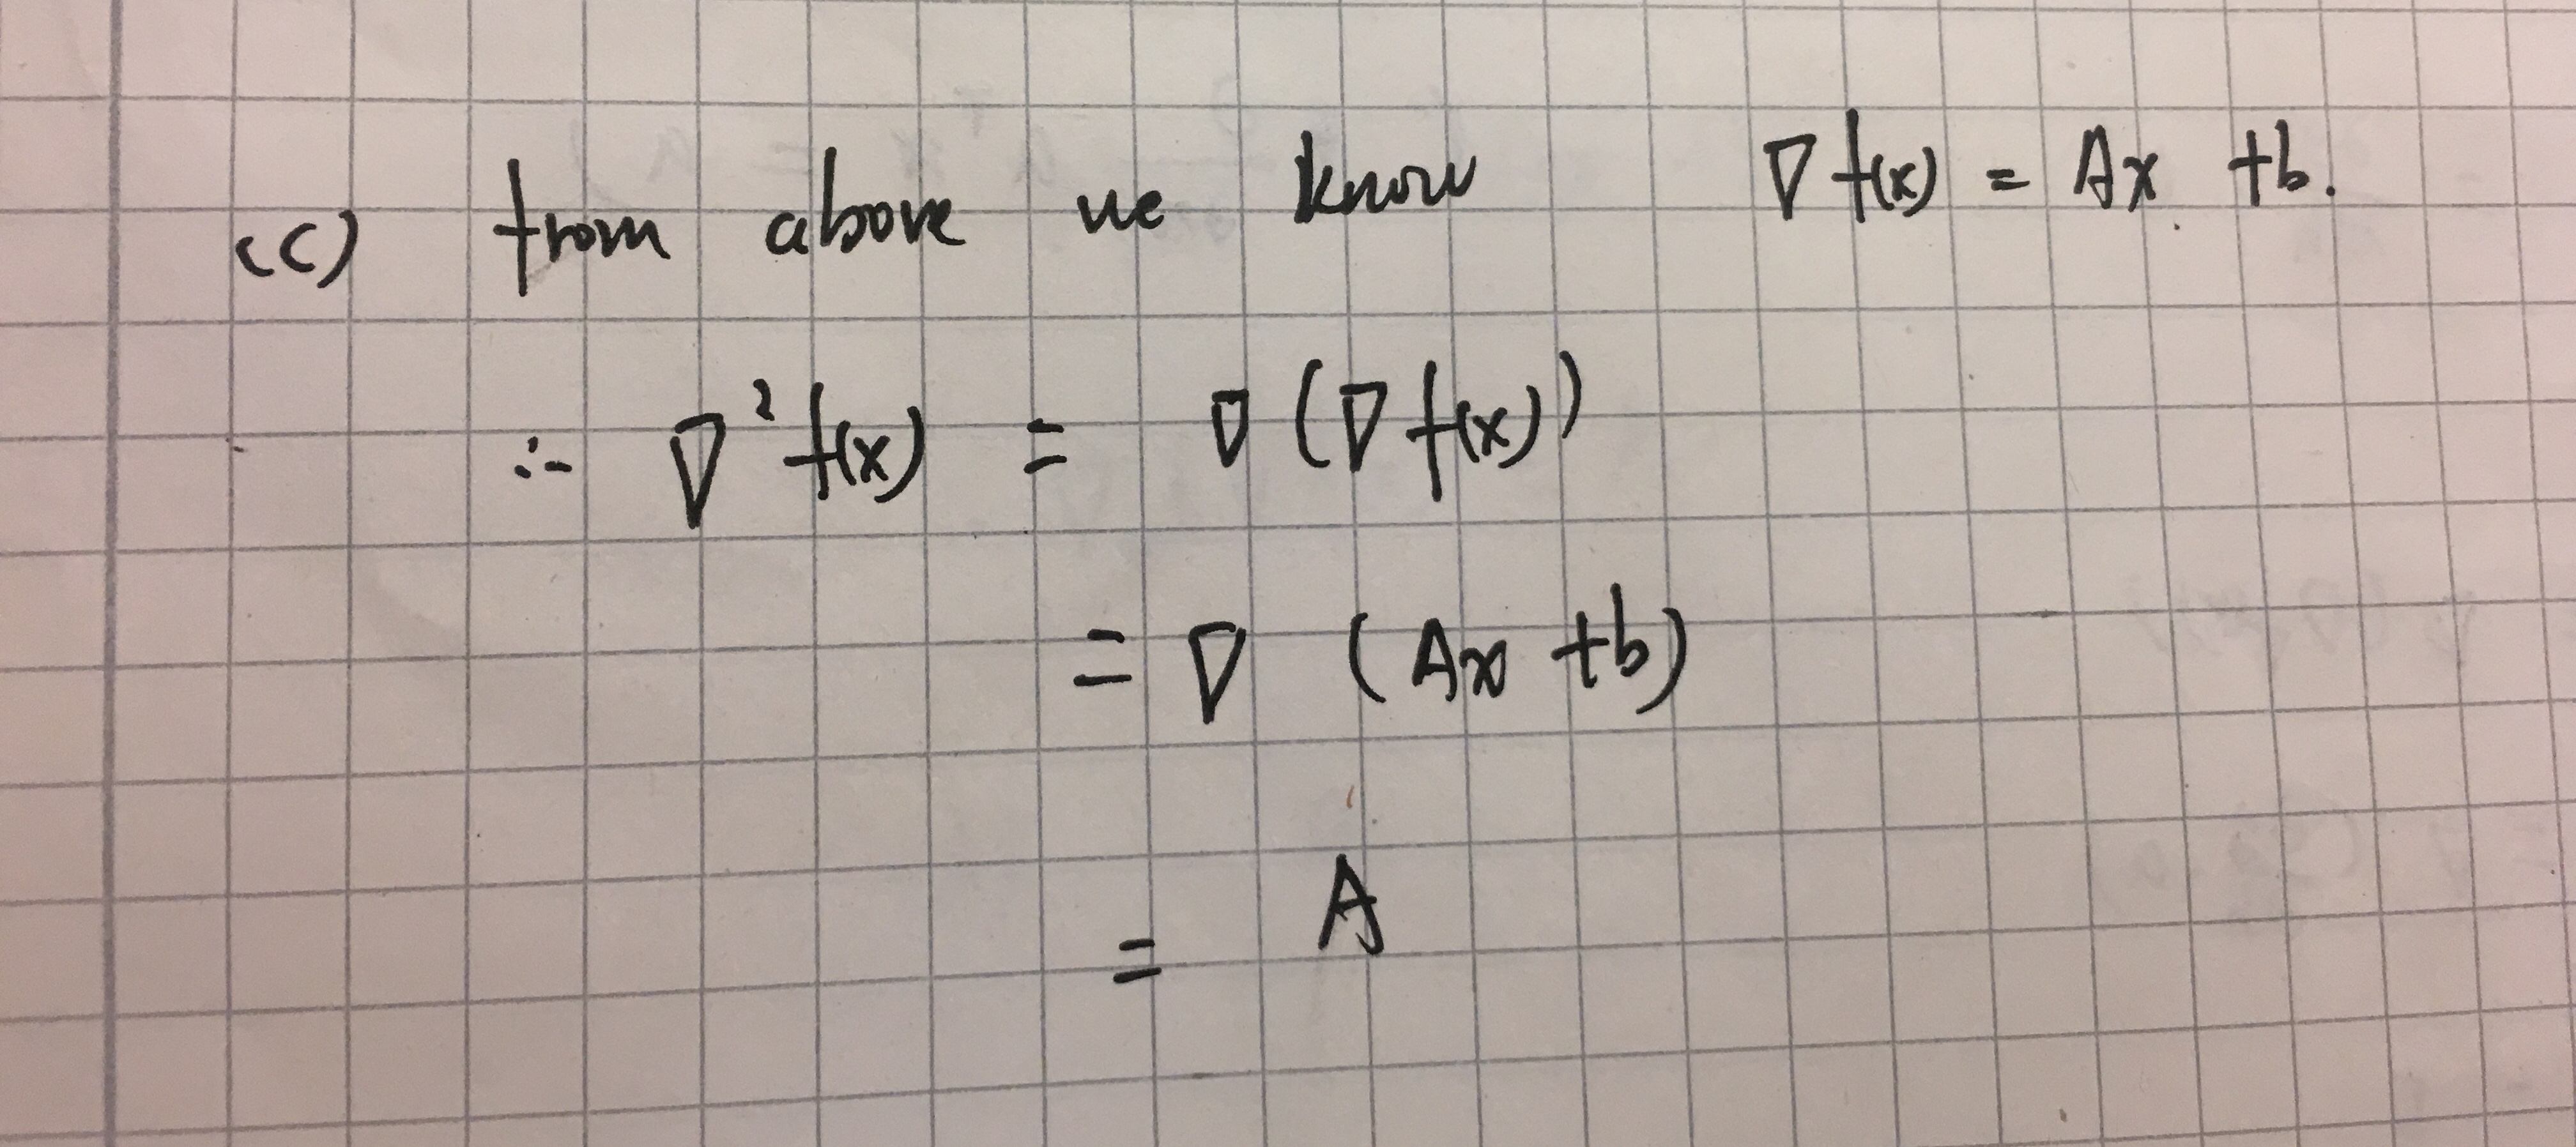 (c) from above we know ∇f(x) = Ax + b.
∴ ∇²f(x) = ∇(∇f(x))
= ∇ (Ax + b)
= A